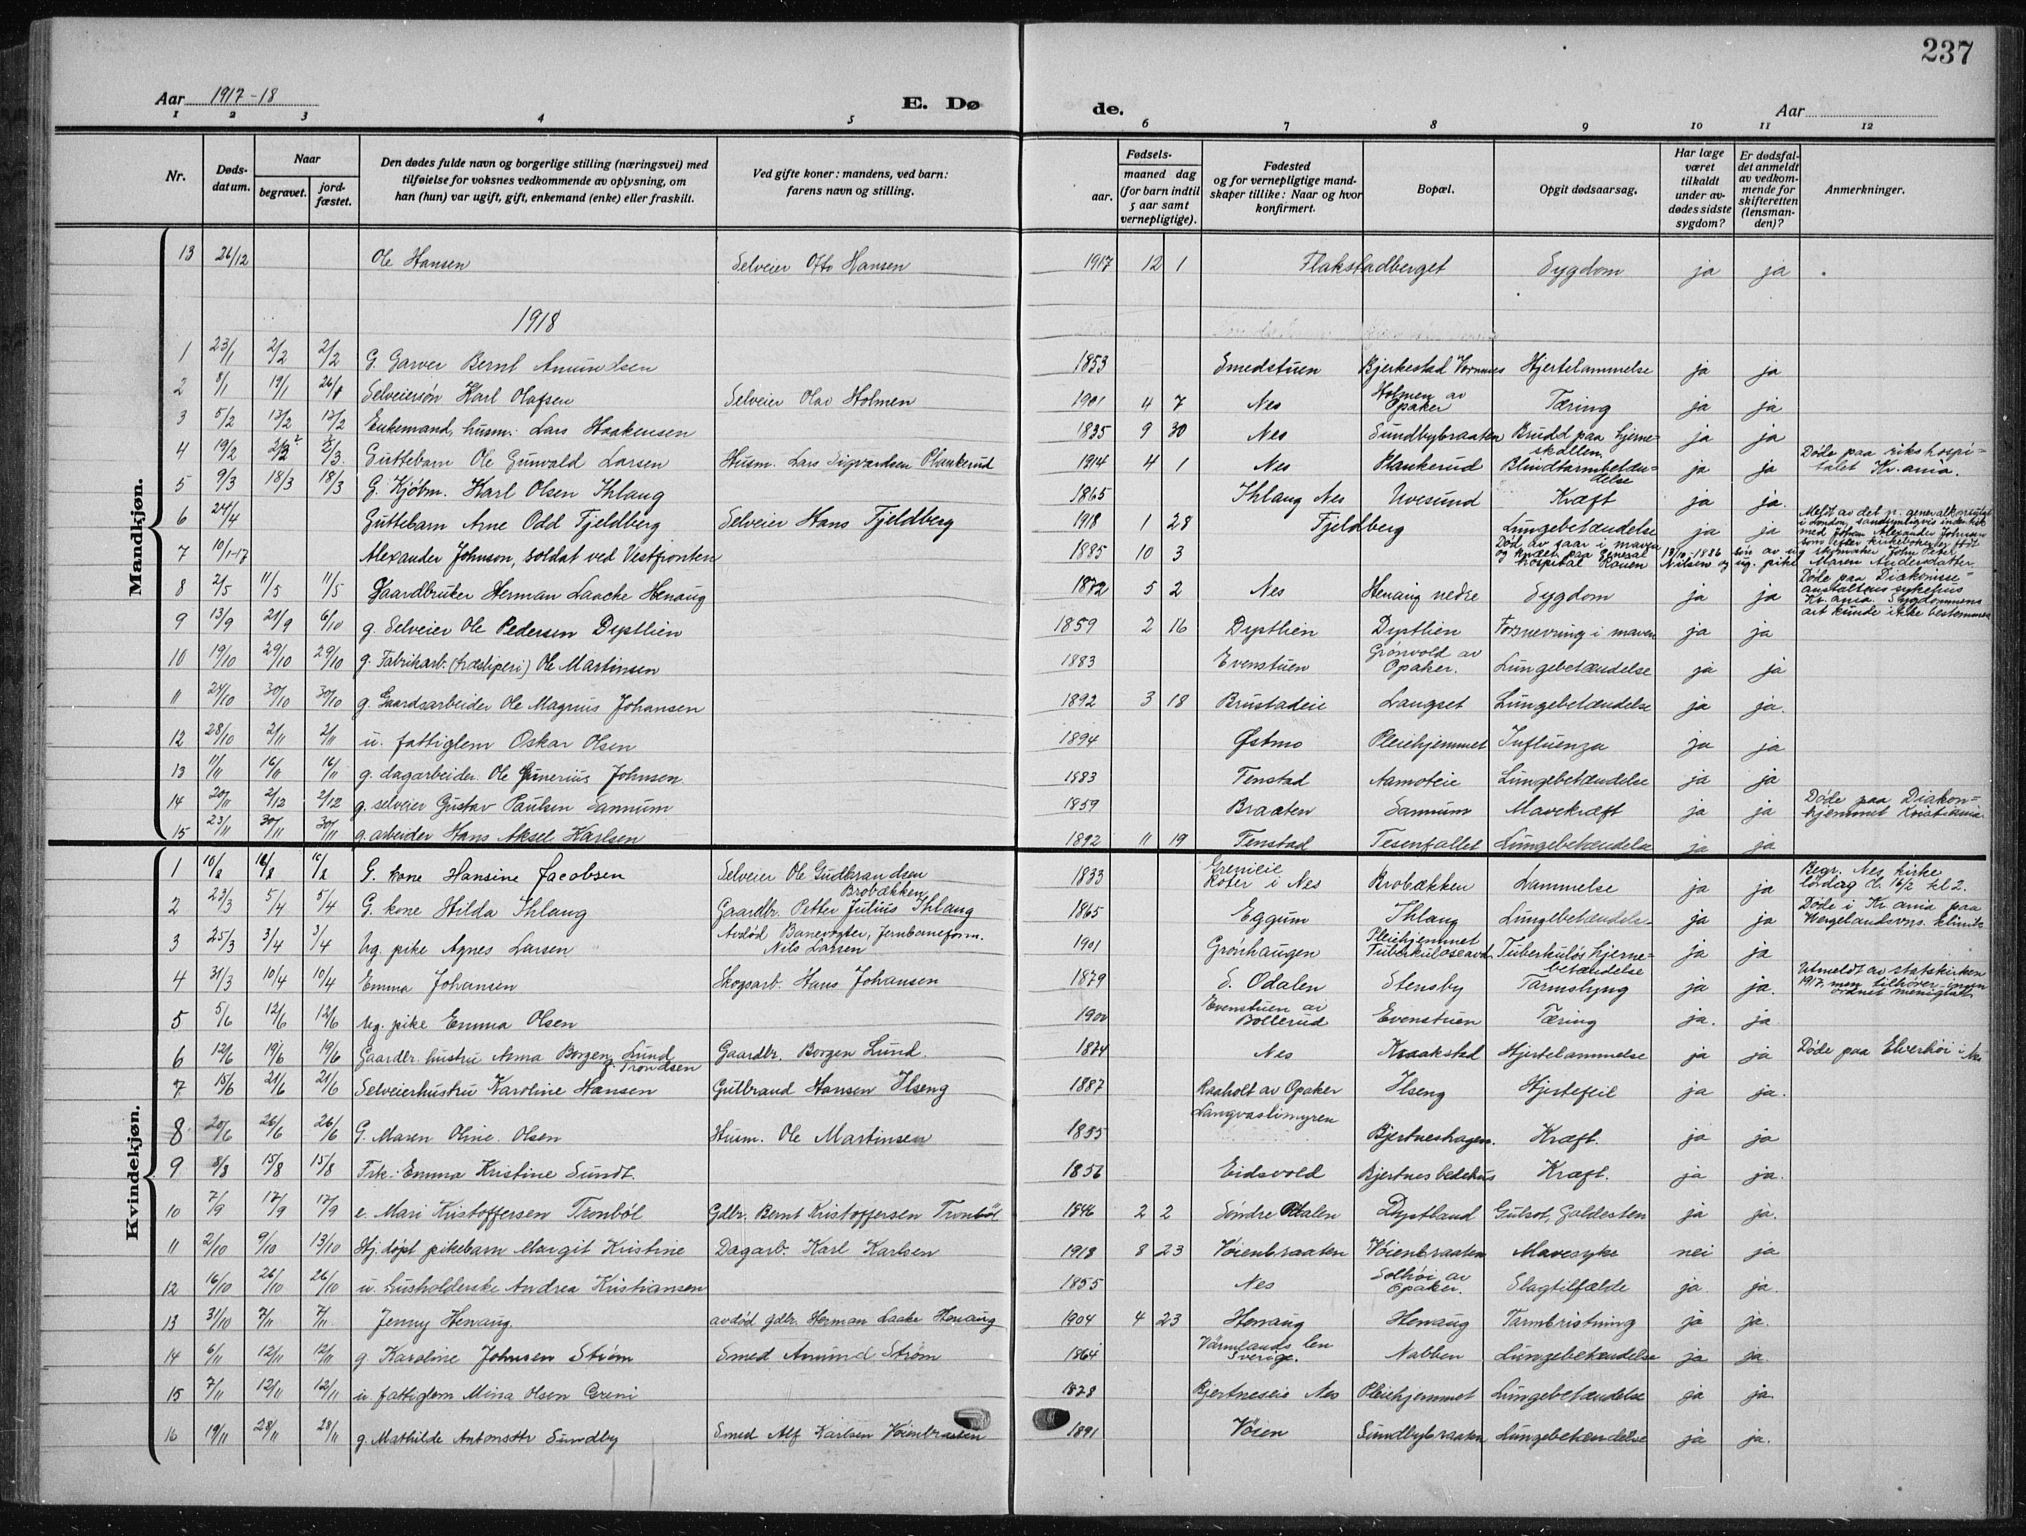 237
Aar 1917-18
E. Dø
de.
Aar
1 2 3 4 5 6 7 8 9 10 11 12
Nr.
Døds-
datum.
Naar
begravet.
jord-
fæstet.
Den dødes fulde navn og borgerlige stilling (næringsvei) med
tilføielse for voksnes vedkommende av oplysning, om
han (hun) var ugift, gift, enkemand (enke) eller fraskilt.
Ved gifte koner: mandens, ved barn:
farens navn og stilling.
Fødsels-
aar.
maaned dag
(for barn indtil
5 aar samt
vernepligtige).
Fødested
og for vernepligtige mand-
skaper tillike: Naar og hvor
konfirmert.
Bopæl.
Opgit dødsaarsag.
Har læge
været
tilkaldt
under av-
dødes sidste
sygdom?
Er dødsfal-
det anmeldt
av vedkom-
mende for
skifteretten
(lensman-
den)?
Anmerkninger.
Mandkjøn.
13 26/12 Ole Hansen Selveier Otto Hansen 1917 12 1 Flakstadberget Sygdom ja ja
1918
1 23/1 2/2 2/2 G. Garver Bernt Amundsen 1853 Smedstuen Bjerkestad Vormnes Hjertelammelse ja ja
2 8/1 19/1 26/1 Selveiersøn Karl Olafsen Selveier Olav Holmen 1901 4 7 Nes Holmen av Opaker Tæring ja ja
3 5/2 12/2 12/2 Enkemand, husm. Lars Haakensen 1835 9 30 Nes Sundbybraaten Brudd paa hjerne-skallen. ja ja
4 19/2 2/3 2/3 Guttebarn Ole Gunvald Larsen Husm. Lars Sigvardsen Plankerud 1914 4 1 Nes Plankerud Blindtarmbetæn-delse ja ja Døde paa rikshospi-talet Kr.ania.
5 9/3 18/3 18/3 G. Kjøbm. Karl Olsen Ihlang 1865 Ihlang Nes Uvesund Kræft ja ja.
6 24/4 Guttebarn Arne Odd Fjeldberg Selveier Hans Fjeldberg 1918 1 28 Fjeldberg Lungebetændelse ja ja
7 10/1-17 Alexander Johnson, soldat ved Vestfronten 1885 10 3 Død av saar i maven og knæet paa General hospital Rouen Meldt av det n. generalkonsulat i London, sandsynligvis indentisk med Johan Alexander Johnsen som efter kirkeboken er født 18/10-1886 søn av ug skomaker John Peter Nilsen og ug. pike Maren Andersdatter
8 2/5 11/5 11/5 Gaardbruker Herman Laache Henaug 1872 5 2 Nes Henaug nedre Sygdom ja ja Døde paa Diakonisse-anstaltens sykehus Kr.ania. Sygdommens art kunde ikke bestemmes
9 13/9 21/9 6/10 g. Selveier Ole Pedersen Dystlien 1859 2 16 Dystlien Dystlien Forsnevring i maven ja ja
10 19/10 29/10 29/10 g. Fabrikarb. (træsliperi) Ole Martinsen 1883 Evenstuen Grønvold av Opaker. Lungebetændelse ja ja
11 24/10 30/10 30/10 g. Gaardsarbeider Ole Magnus Johansen 1892 3 18 Brustadeie Langset Lungebetændelse ja ja.
12 28/10 2/11 2/11 u. fattiglem Oskar Olsen 1894 Østmo Pleiehjemmet Influenza ja ja
13 11/11 16/11 16/11 g. dagarbeider. Ole Gunerius Johnsen 1883 Fenstad Aamoteie Lungebetændelse ja ja
14 20/11 2/12 2/12 g. selveier Gustav Paulsen Sannum 1859 Braaten Sannum Mavekræft ja ja Døde paa Diakon-hjemmet Kristiania
15 23/11 30/11 30/11 g. arbeider Hans Aksel Karlsen 1892 11 19 Fenstad Tesenfallet Lungebetændelse ja ja
Kvindekjøn.
1 10/2 16/2 16/2 G. kone Hansine Jacobsen Selveier Ole Gudbrandsen Brobækken 1833 Grenieie Roter i Nes Brobækken Lammelse ja ja Begr. Nes kirke lørdag d. 16/2 kl 2.
2 23/3 5/4 5/4 G. kone Hilda Ihlang Gaardbr. Petter Julius Ihlang 1865 Eggum Ihlang Lungebetændelse ja ja Døde i Kr.ania paa Wergelandsvns. klinik
3 25/3 3/4 3/4 Ug. pike Agnes Larsen Avdød Banevogter, Jernbaneform. Nils Larsen 1901 Grønhaugen Pleiehjemmet Tuberkuloseavd. Tuberkuløs hjerne-betændelse ja ja
4 31/3 10/4 10/4 Emma Johansen Skogsarb. Hans Johansen 1879 S. Odalen Stensby Tarmslyng ja ja. Utmeldt av statskirken 1917, men tilhører ingen ordnet menighet
5 5/6 12/6 12/6 Ug. pike Emma Olsen 1900 Evenstuen av Bollerud Evenstuen Tæring ja. ja.
6 12/6 19/6 19/6 Gaardbr. hustru Anna Borgen Lund f. Trondsen Gaardbr. Borgen Lund. 1874 Nes Kraakstad Hjertelammelse ja ja Døde paa Elverhøi i Nes
7 15/6 21/6 21/6 Selveierhustru Karoline Hansen Gulbrand Hansen Ilseng 1887 Raaholt av Opaker Ilseng Hjertefeil ja ja.
8 20/6 26/6 26/6 G. Maren Oline Olsen Husm. Ole Martinsen 1855 Langvaslimyren Bjertneshagen. Kræft. ja ja
9 8/8 15/8 15/8 Frk. Emma Kristine Sundt. 1856 Eidsvold Bjertnes bedehus Kræft. ja ja.
10 7/9 17/9 17/9 e. Mari Kristoffersen Tronbøl Gdbr. Bernt Kristoffersen Tronbøl 1846 2 2 Søndre Odalen Dystland Gulsot, Galdesten ja ja.
11 2/10 9/10 13/10 Hj. døpt pikebarn Margit Kristine Dagarb. Karl Karlsen 1918 8 23 Vøienbraaten Vøienbraaten Mavesyke nei ja
12 16/10 26/10 26/10 u. husholderske Andrea Kristiansen 1855 Nes Solhøi av Opaker. Slagtilfælde ja. ja.
13 31/10 7/11 7/11 Jenny Henaug. avdød gdbr. Herman Laake Henaug 1904 4 23 Henaug Henaug Tarmbristning ja ja.
14 6/11 12/11 12/11 g. Karoline Johnsen Strøm Smed Amund Strøm 1864 Värmlands len Sverige. Nabben Lungebetændelse ja ja.
15 7/11 12/11 12/11 u. fattiglem Mina Olsen Greni 1878 Bjertneseie Nes Pleiehjemmet Lungebetændelse ja ja
16 19/11 28/11 28/11 g. Mathilde Antonsdtr Sundby Smed Alf Karlsen Vøienbraaten 1891 Vøien Sundbybraaten Lungebetændelse ja ja.